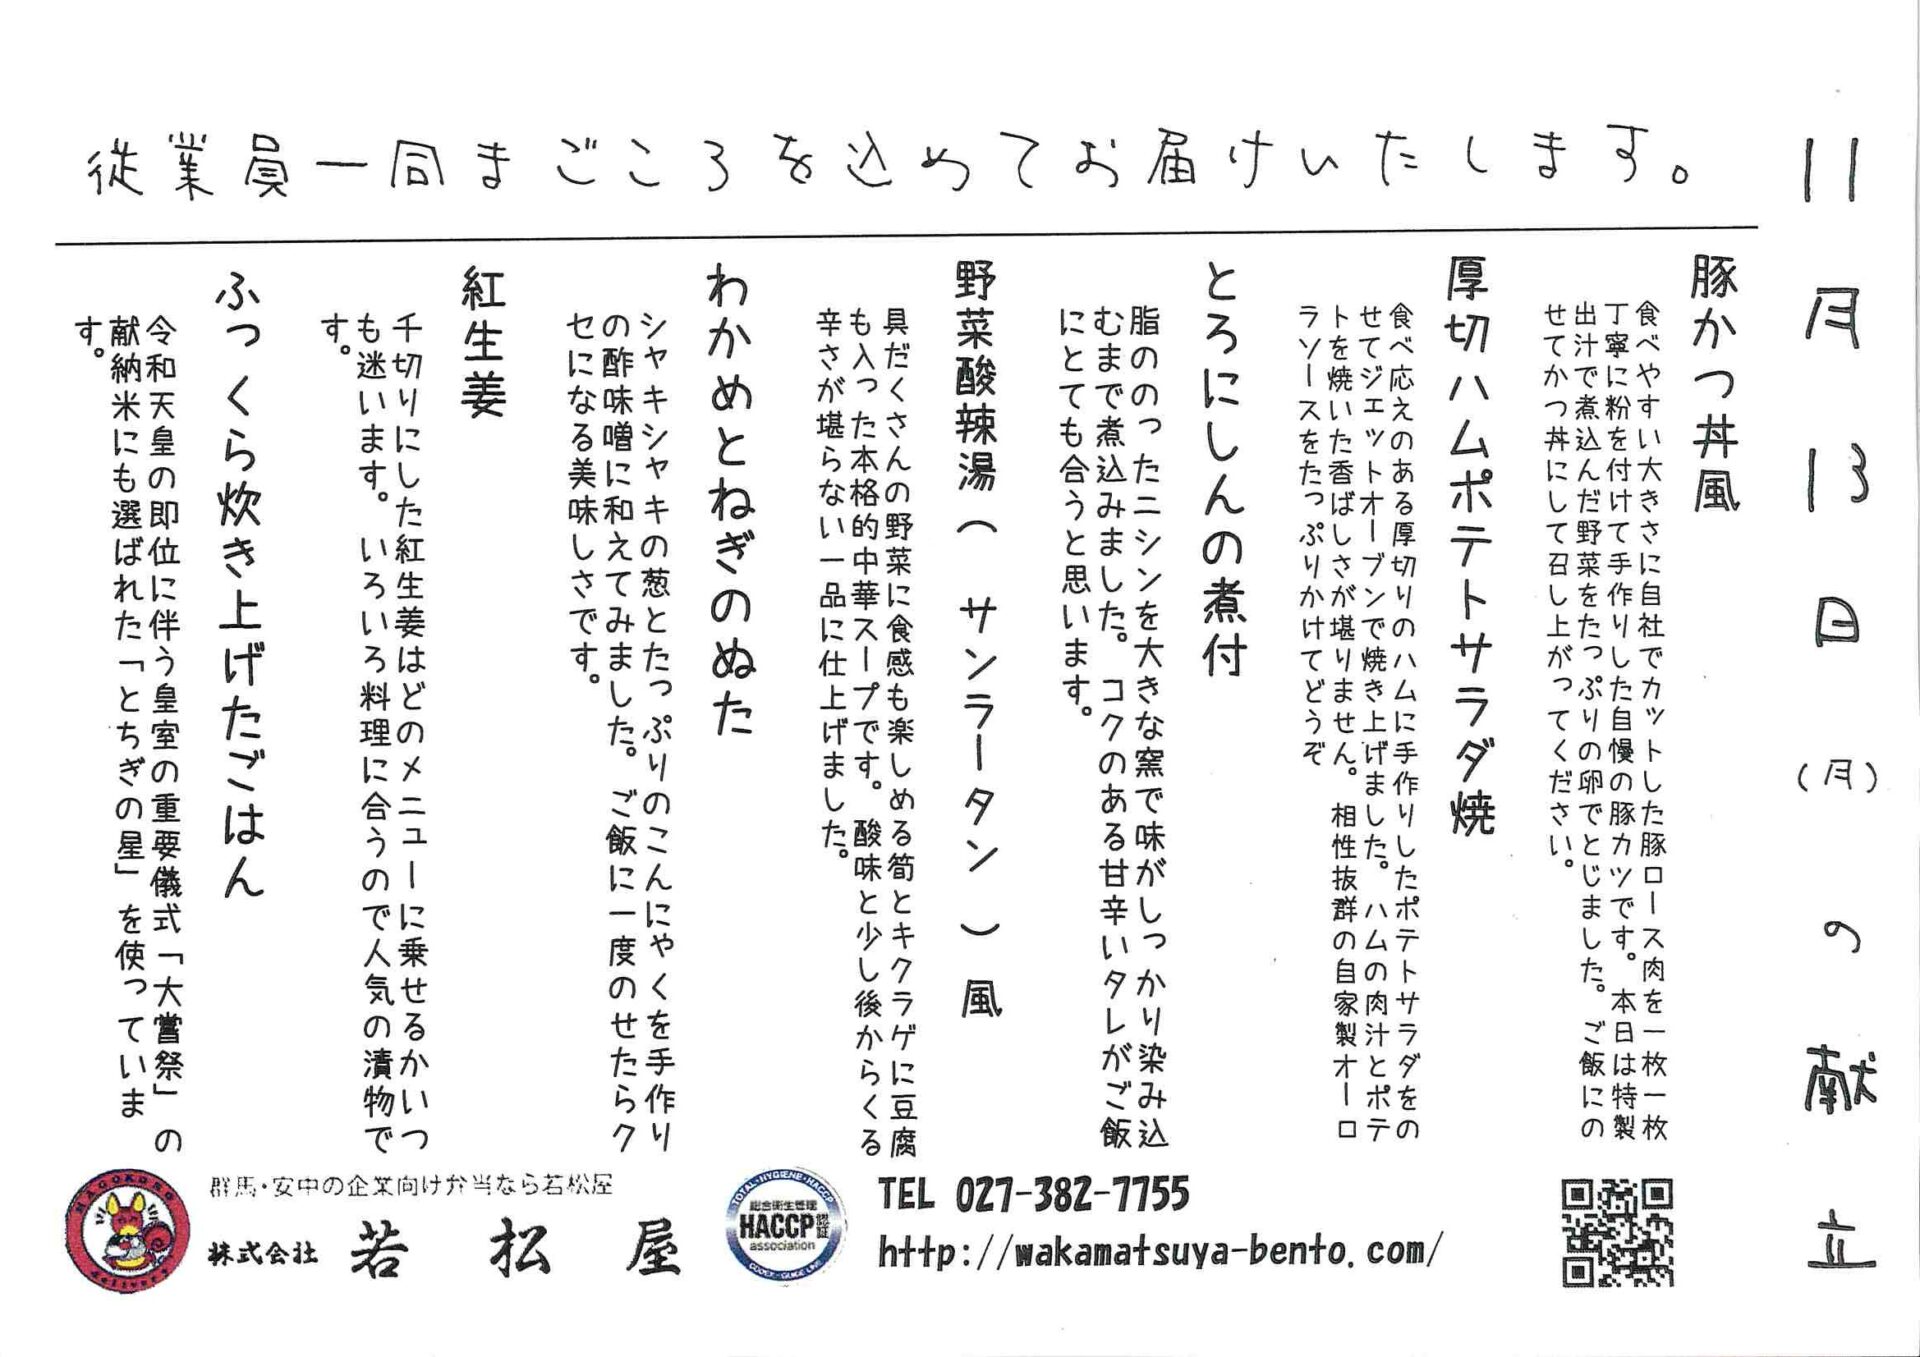 11月13日(月)の献立
従業員一同まごころを込めてお届けいたします。
豚かつ丼風
食べやすい大きさに自社でカットした豚ロース肉を一枚一枚
丁寧に粉を付けて手作りした自慢の豚カツです。本日は特製
出汁で煮込んだ野菜をたっぷりの卵でとじました。ご飯にの
せてかつ丼にして召し上がってください。
厚切ハムポテトサラダ焼
食べ応えのある厚切りのハムに手作りしたポテトサラダをの
せてジェットオーブンで焼き上げました。ハムの肉汁とポテ
トを焼いた香ばしさが堪りません。相性抜群の自家製オーロ
ラソースをたっぷりかけてどうぞ
とろにしんの煮付
脂ののったニシンを大きな窯で味がしっかり染み込
むまで煮込みました。コクのある甘辛いタレがご飯
にとても合うと思います。
野菜酸辣湯(サンラータン)風
具だくさんの野菜に食感も楽しめる筍とキクラゲに豆腐
も入った本格的中華スープです。酸味と少し後からくる
辛さが堪らない一品に仕上げました。
わかめとねぎのぬた
シャキシャキの葱とたっぷりのこんにゃくを手作り
の酢味噌に和えてみました。ご飯に一度のせたらク
セになる美味しさです。
紅生姜
千切りにした紅生姜はどのメニューに乗せるかいつ
も迷います。いろいろ料理に合うので人気の漬物で
す。
ふっくら炊き上げたごはん
令和天皇の即位に伴う皇室の重要儀式「大嘗祭」の
献納米にも選ばれた「とちぎの星」を使っていま
す。
MAGOKORO
delivery
群馬・安中の企業向け弁当なら若松屋
株式会社 若松屋
TOTAL・HYGIENE・HACCP
総合衛生管理
HACCP認証
association
CODEX・GUIDE LINE
TEL 027-382-7755
http://wakamatsuya-bento.com/